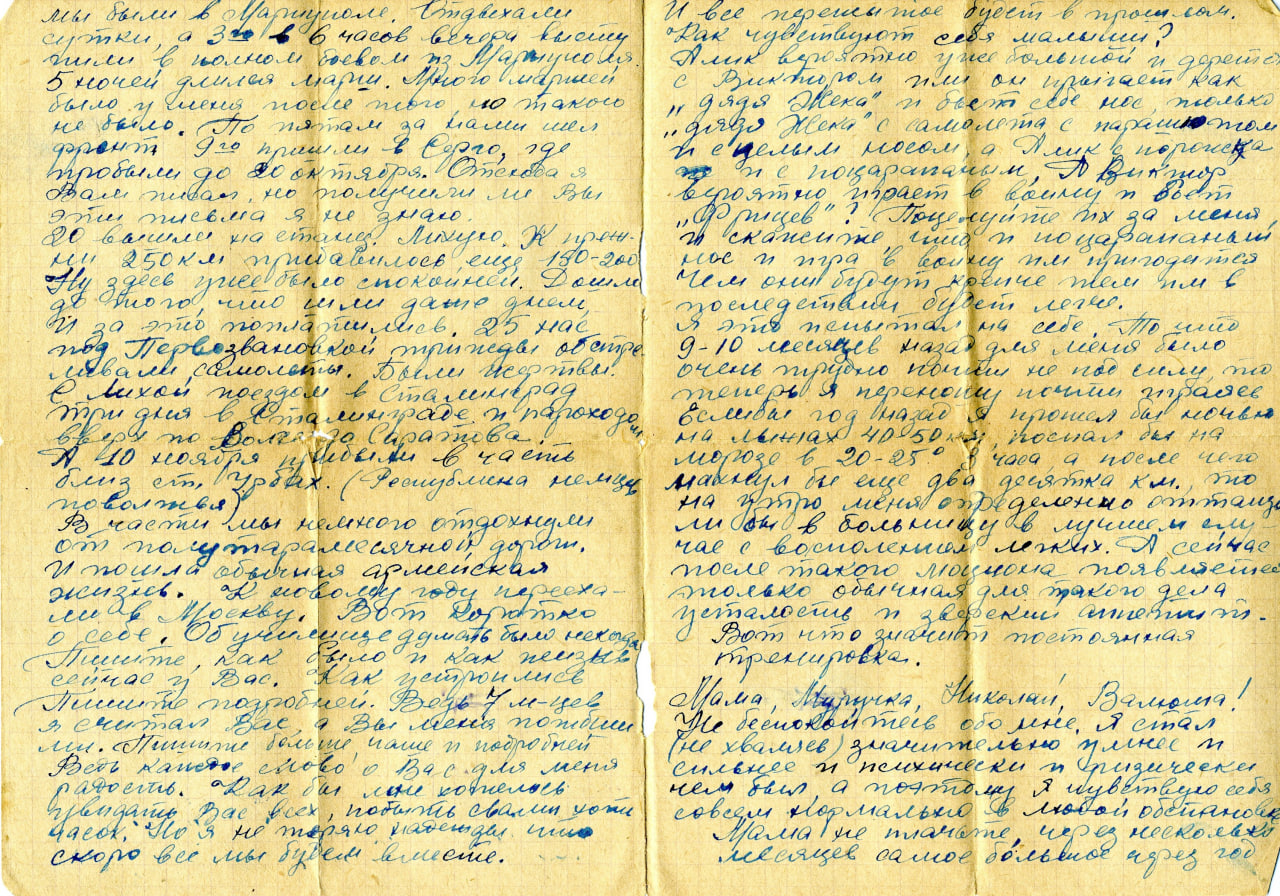 мы были в Мариуполе. Отдыхали
сутки, а 3го в 6 часов вечера высту
пили в полном боевом из Мариуполя.
5 ночей длился марш. Много маршей
было у меня после того, но такого
не было. По пятам за нами шел
фронт. 9го пришли в Серго, где
пробыли до 20 октября. Оттсюда я
Вам писал, но получили ли Вы
эти письма я не знаю.
20 вышли на станц. Лихую. К преж-
ни 250 км прибавилось еще 190-200
Ну здесь уже было спокойней. Дошли
до того, что шли даже днем,
И за это поплатились. 25 нас
под Первозвановкой трижды обстре-
ливали самолеты. Были жертвы.
С Лихой поездом в Сталинград
три дня в Сталинграде и пароходом
вверх по Волге до Саратова.
А 10 ноября прибыли в часть
близ ст. Урбах. (Республика немцев
поволжья)
В части мы немного отдохнули
от полуторамесячной дороги.
И пошла обычная армейская
жизнь. К новому году перееха-
ли в Москву. Вот коротко
о себе. Об училище думать было некогда
Пишите, как было и как жизнь
сейчас у Вас. Как устроились
Пишите подробней. Ведь 7 м-цев
я считал Вас, а Вы меня погибши
ми. Пишите больше чаще и подробней
Ведь каждое слово о Вас для меня
радость. Как бы мне хотелось
увидать Вас всех, побыть с вами хоти
часок. Но я не теряю надежды что
скоро все мы будем вместе.
И все пережитое будет в прошлом.
Как чувствуют себя малыши?
Алик вероятно уже большой и дерется
с Виктором или он прыгает как
„дядя Жека" и бьет себе нос, только
„дядя Жека" с самолета с парашютом
и с целым носом, а Алик с
и с поцарапаным, А Виктор
вероятно играет в войну и бьет
„Фрицев"? Поцелуйте их за меня
и скажите, что и поцарапаный
нос и игра в войну им пригодится
Чем они будут крепче тем им в
последствии будет легче.
Я это испытал на себе. То что
9-10 месяцев назад для меня было
очень трудно почти не под силу, то
теперь я переношу почти играясь
Если бы год назад я прошел бы ночью
на лыжах 40-50 км, поспал бы на
морозе в 20-25° часа, а после чего
махнул бы еще два десятка км., то
на утро меня определенно оттащи
ли бы в больницу в лучшем слу-
чае с воспалением легких. А сейчас
после такого моциона появляется
только обычная для такого дела
усталость и зверский аппетит.
Вот что значит постоянная
тренировка.
Мама, Мурочка, Николай, Валюша!
Не беспокойтесь обо мне. Я стал
(не хвалясь) значительно умнее и
сильнее и психически и физически
чем был, а поэтому я чувствую себя
совсем нормально в любой обстановке
Мама не плачьте, через несколько
месяцев самое большое через год